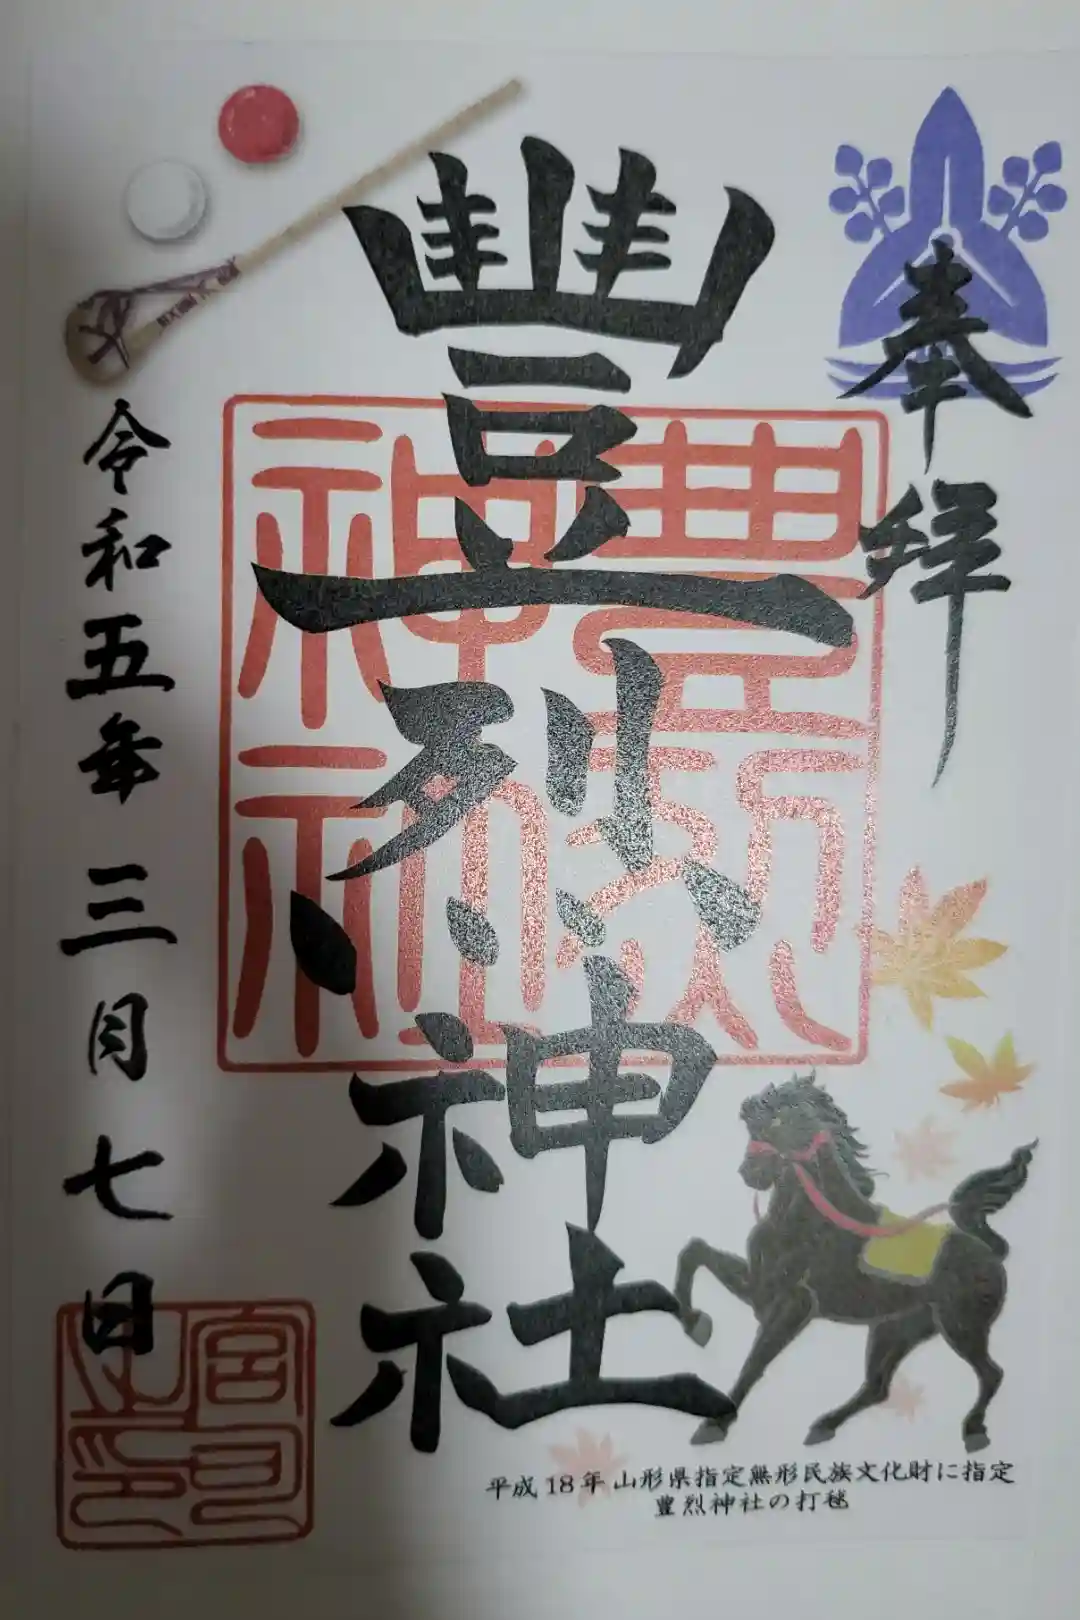 奉拝
豊烈神社
令和五年三月七日
豊烈神社
宮司之印
平成18年 山形県指定無形民族文化財に指定
豊烈神社の打毬